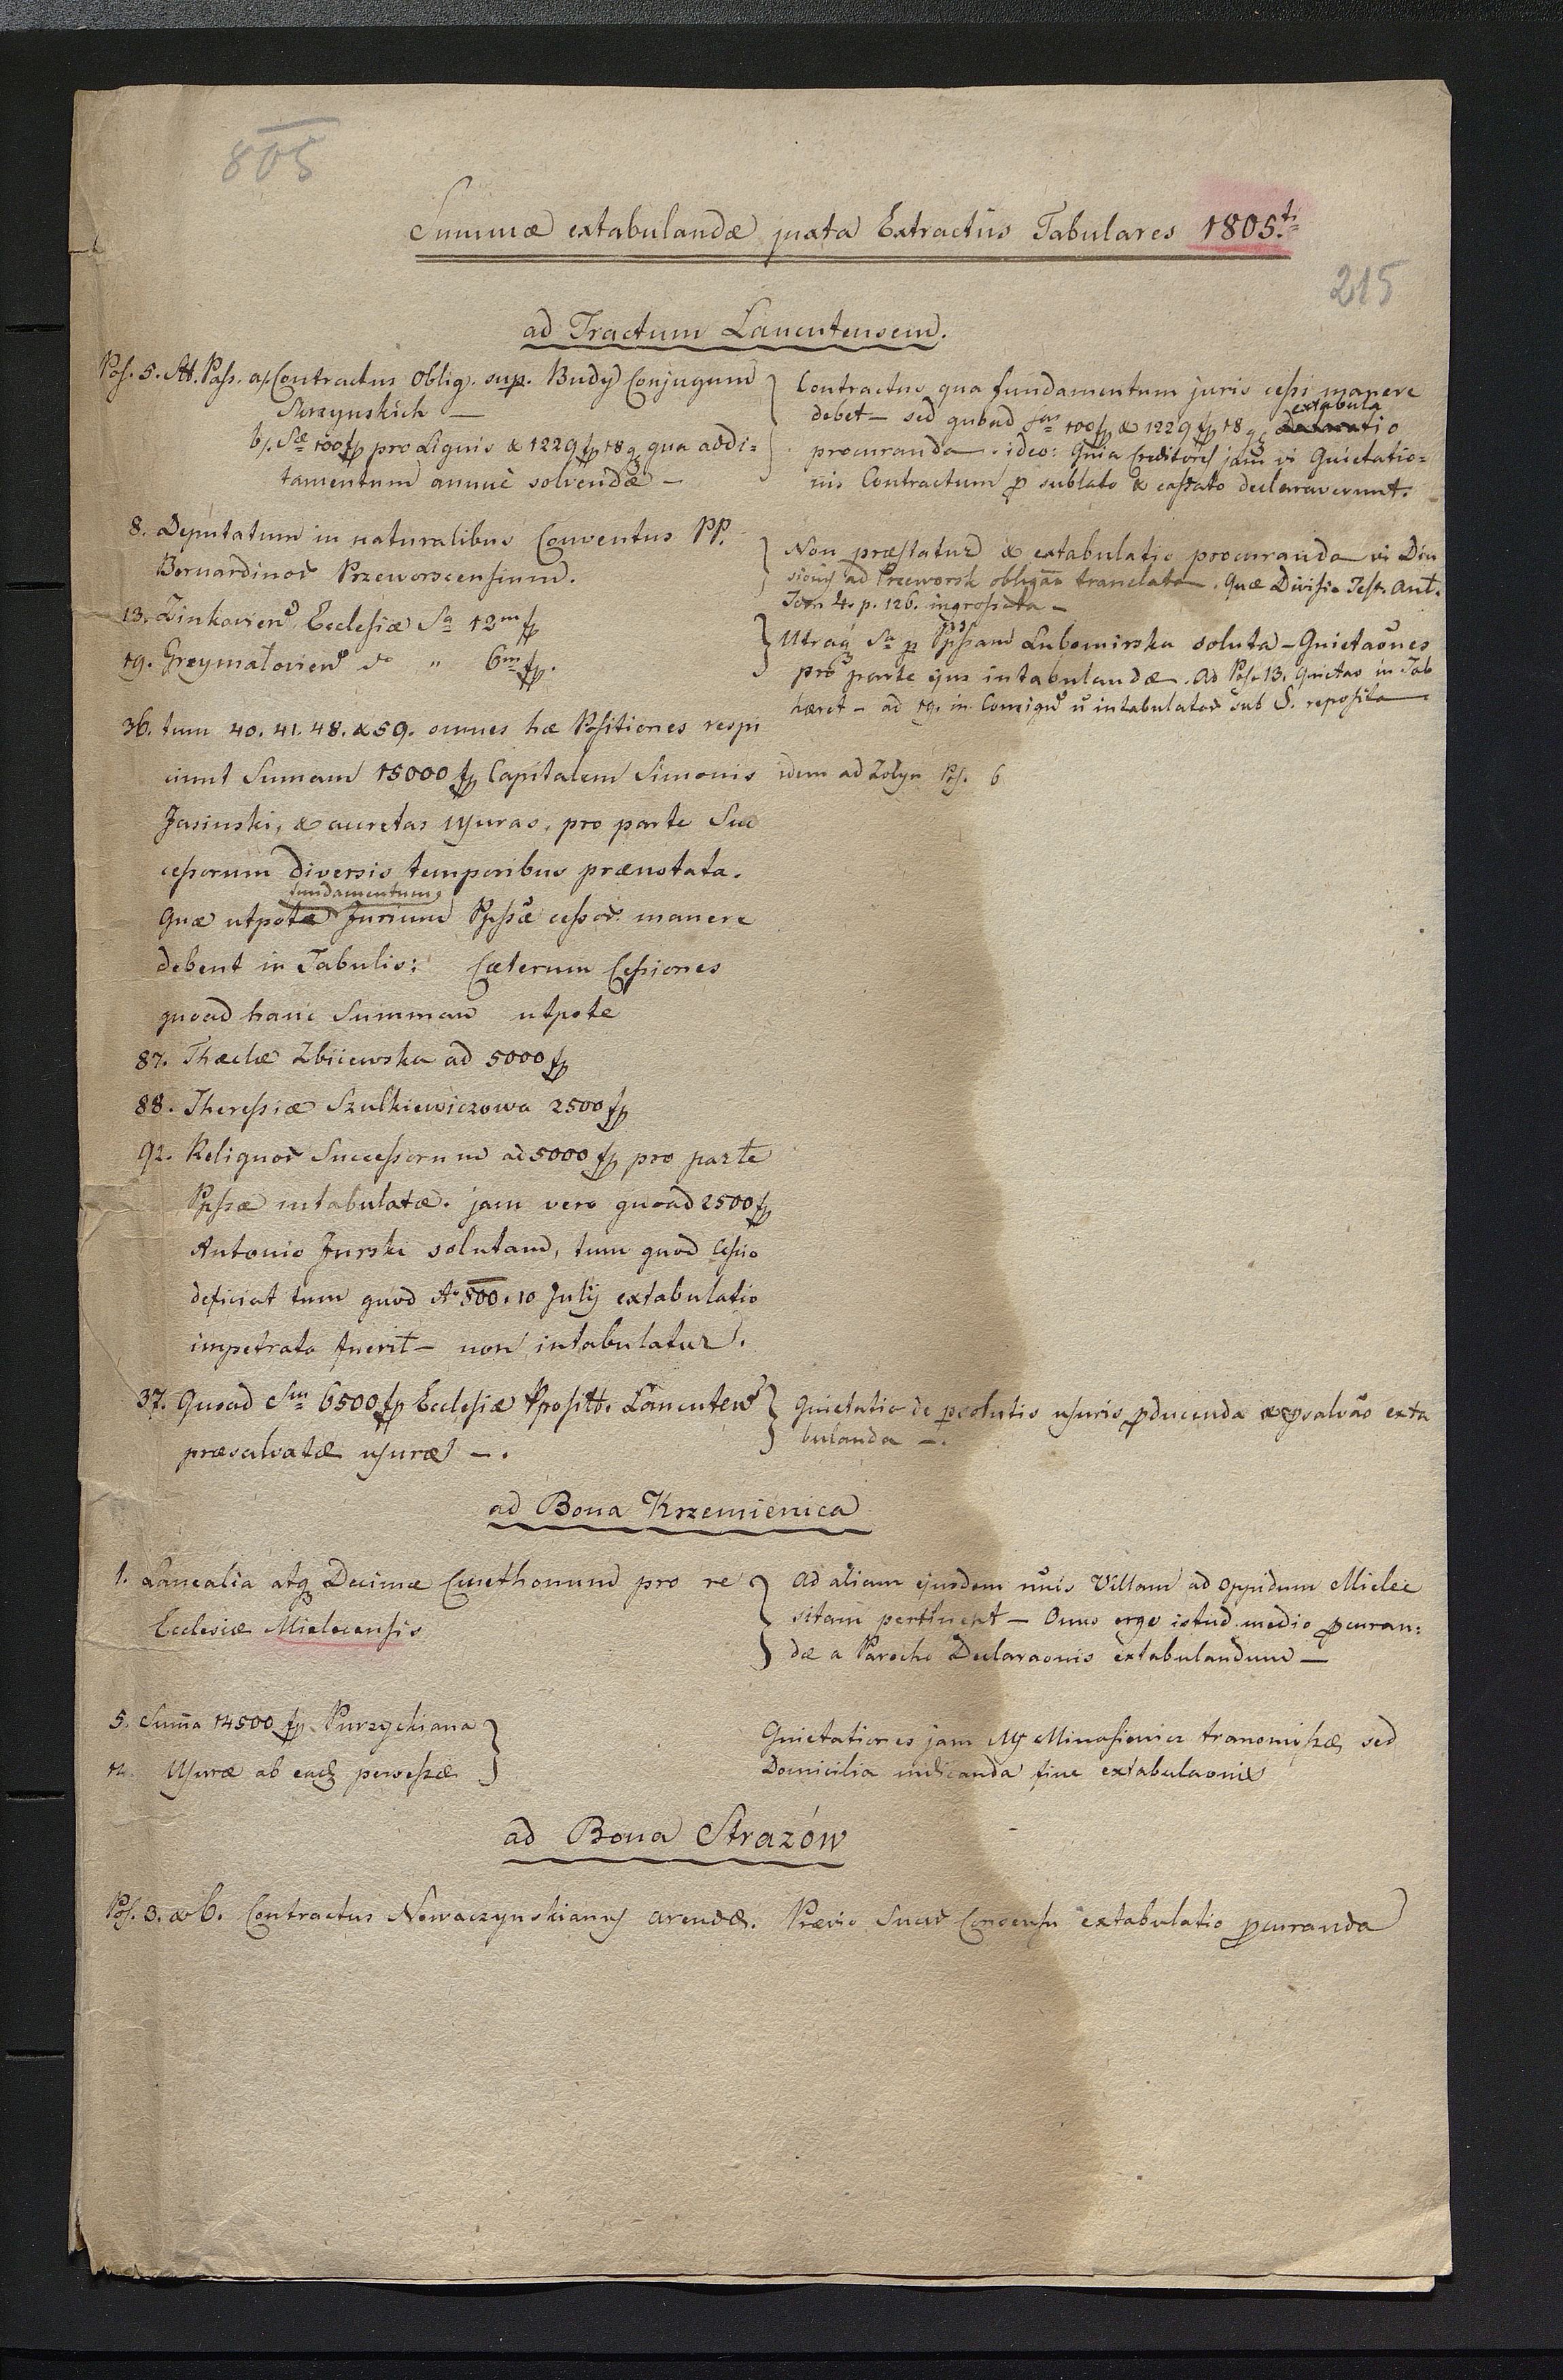 805
Summæ extabulandæ juxta Extractus Tabulares 1805.ti
215
ad Tractum Lancutensem.
Pos. 5. Att. Pass. a/. Contractus Oblig. sup. Budy Conjugum
Skrzynskich —
b/. Sæ 100 fp pro Lignis & 1229 fp 18 g qua addi=
tamentum annue solvendæ —
Contractus qua fundamentum juris cessi manere
debet — sed quoad sas 100 fp & 1229 fp 18 g extabula
tio
procuranda. ideo: Quia Creditores jam vi Quietatio=
nis Contractum p sublato & cassato declaraverunt.
8. Deputatum in naturalibus Conventus PP.
Bernardinor Przeworscensium.
Non præstatur & extabulatio procuranda vi Divi
sionis ad Przeworsk obligao translata. Quæ Divisio Test. Ant.
Tom 4. p. 126. ingrossata —
13. Zinkovien Ecclesiæ Sa 12m fp
19. Grzymalovien do " 6m fp.
Utraq Sa p Ppssam Lubomirska soluta — Quietaoes
pro parte ejus intabulandæ. Ad Pos. 13. Quietao in Tab
hæret — ad 19. in intabulator sub S. reposita
36. tum 40. 41. 48. & 59. omnes hæ Positiones respi
ciunt Sumam 15000 fp Capitalem Simonis
Jasinski, & accretas usuras, pro parte Suc
cessorum diversis temporibus prænotata.
fundamentum
Quæ utpote Jurium Ppssæ cessor manere
debent in Tabulis: Cæterum Cessiones
quoad hanc Summam utpote
idem ad Zołyn Pos. 6
87. Theclæ Zbiiewska ad 5000 fp
88. Theressiæ Szulkiewiczowa 2500 fp
92. Reliquor Successorum ad 5000 fp pro parte
Ppssæ intabulatæ. jam vero quoad 2500 fp
Antonio Jurski solutam, tum quod Cessio
deficiat tum quod Ao 800. 10 July extabulatio
impetrata fuerit — non intabulatur.
37. Quoad Sm 6500 fp Ecclesiæ Ppositt. Lancuten
præsalvatæ usuræ —.
Quietatio de psolutis usuris pducenda & psalvao exta
bulanda —.
ad Bona Krzemienica
1. Lanealia atq Decimæ Cmethonum pro re
Ecclesiæ Mielecensis
Ad aliam ejusdem nnis Villam ad oppidum Mielec
sitam pertinent — Onus ergo istud medio pcuran=
dæ a Parocho Declaraonis extabulandum —
5. Suma 14500 fp Purzyckiana
12. Usuræ ab eade pvessæ
Quietationes jam Minasiewicz transmissæ, sed
Domicilia indicanda fine extabulaonis
ad Bona Strazów
Pos. 3. & 6. Contractus Nowaczynskianus arendæ. Prævio Sucor Consensu extabulatio pcuranda